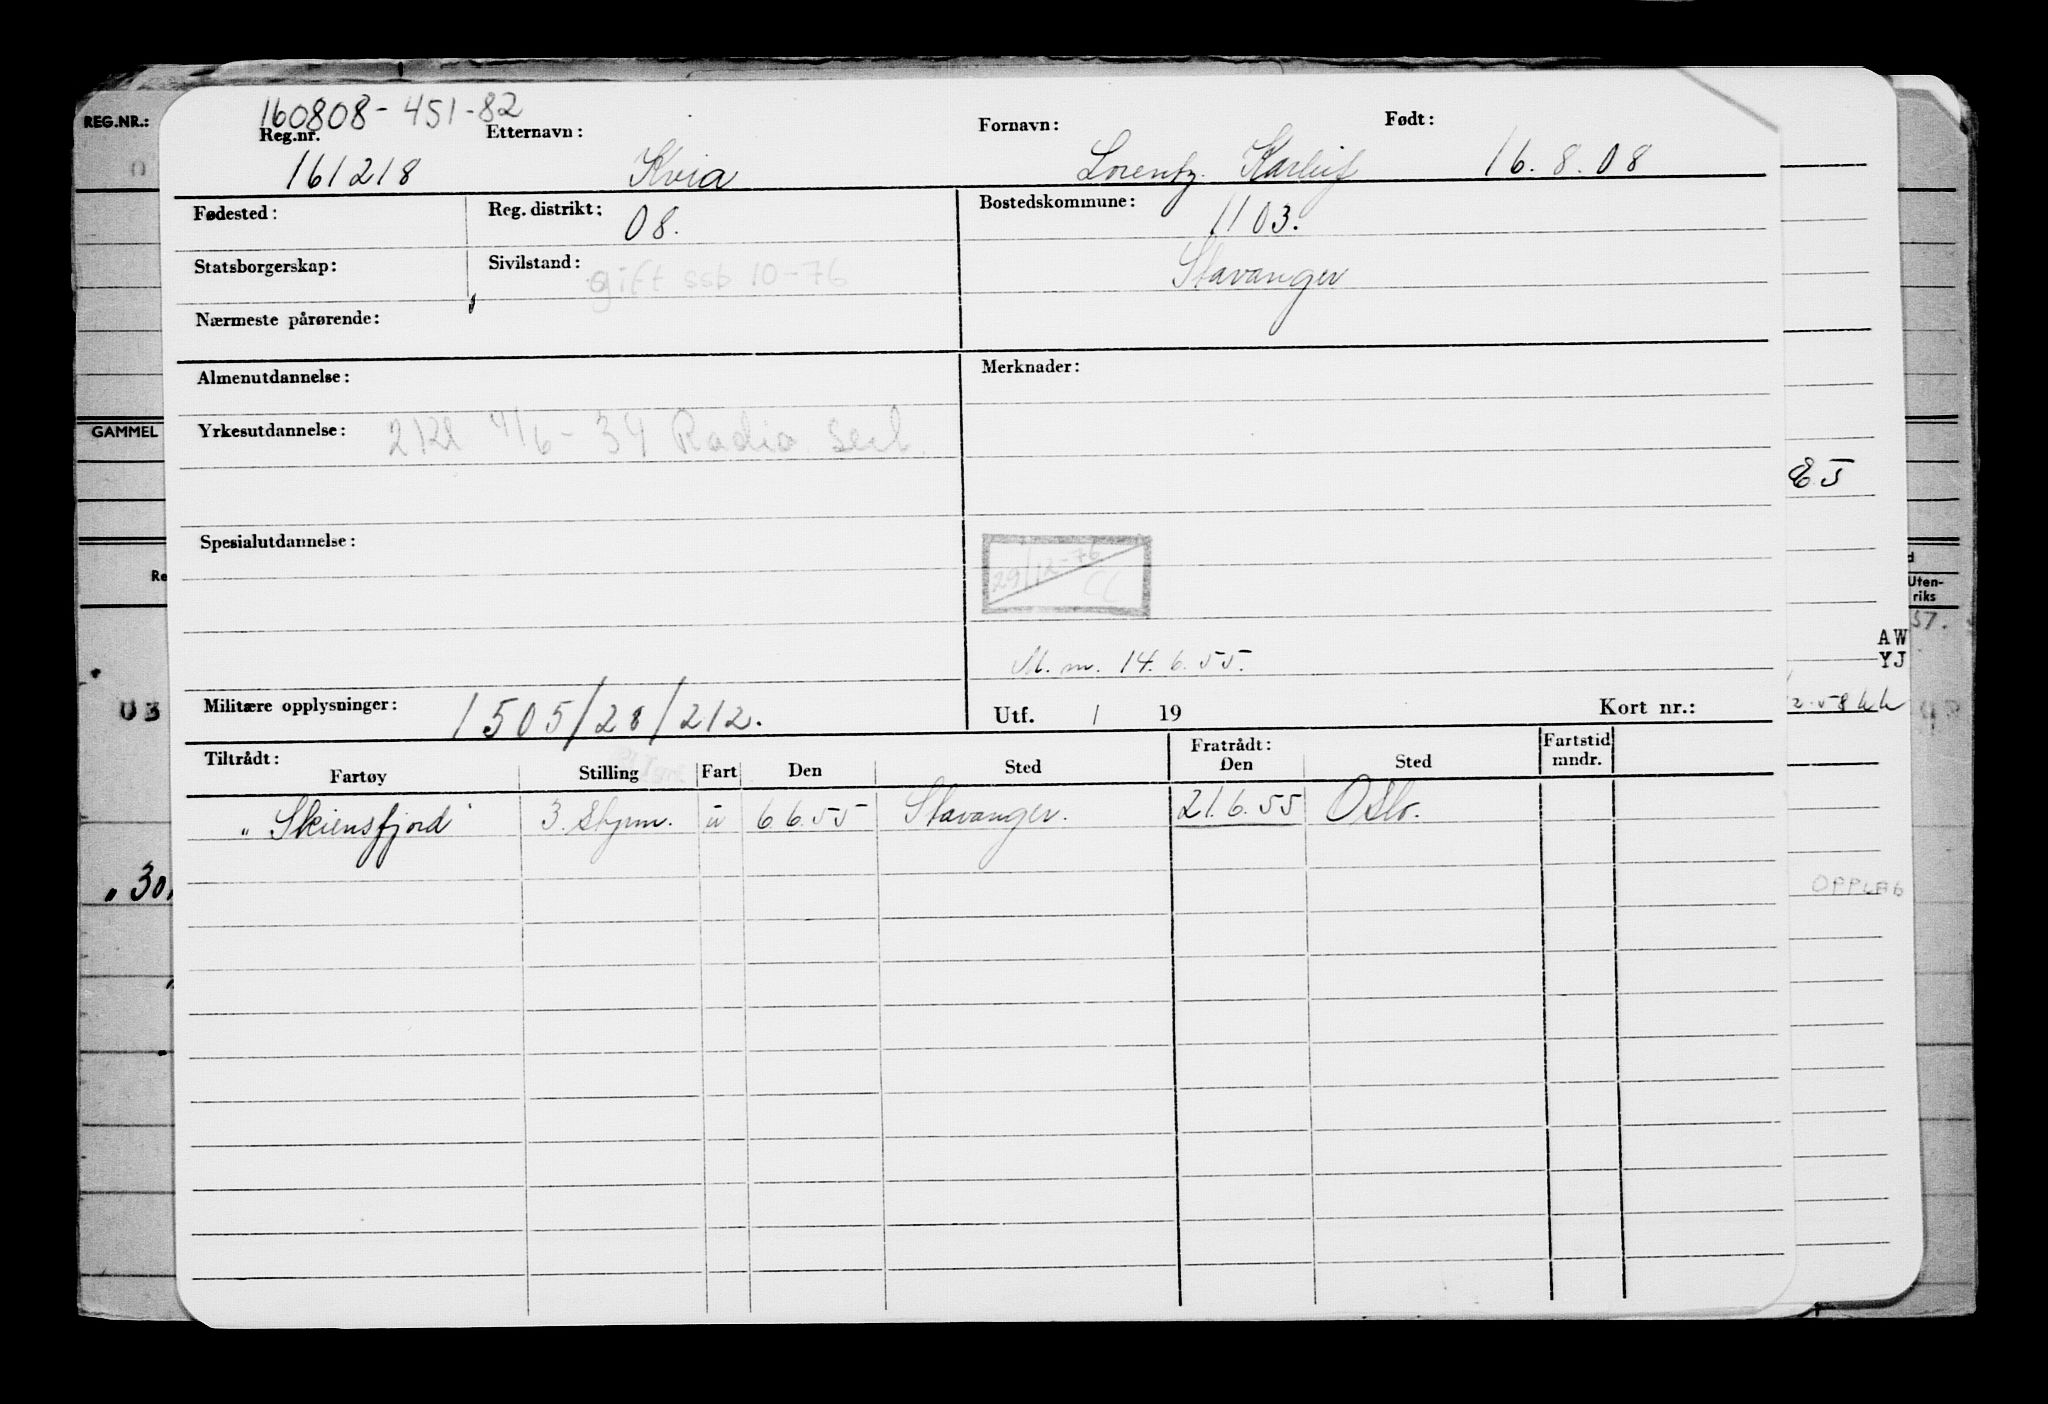 160808-451-82
REG.NR.:
Reg.nr. Etternavn: Fornavn: Født:
161218 Kvia Lorentz Karluf 16.8.08
Fødested: Reg. distrikt: 08. Bostedskommune: 1103.
Statsborgerskap: Sivilstand: gift ssb 10-76 Stavanger
Nærmeste pårørende:
Almenutdannelse: Merknader:
GAMMEL Yrkesutdannelse: 2/kl 4/6-34 Radio Sert.
85
Spesialutdannelse: 29/12-76 CL
Re
Uten-
riks
57.
AW
YJ
M.m. 14.6.55.
Militære opplysninger: 1505/28/212. Utf. / 19 Kort nr.:
03
2.58
Tiltrådt: Fratrådt: Fartstid
Fartøy Stilling Fart Den Sted Den Sted mndr.
"Skiensfjord" 3. Styrm. u 6.6.55 Stavanger. 21.6.55 Oslo.
" 30.